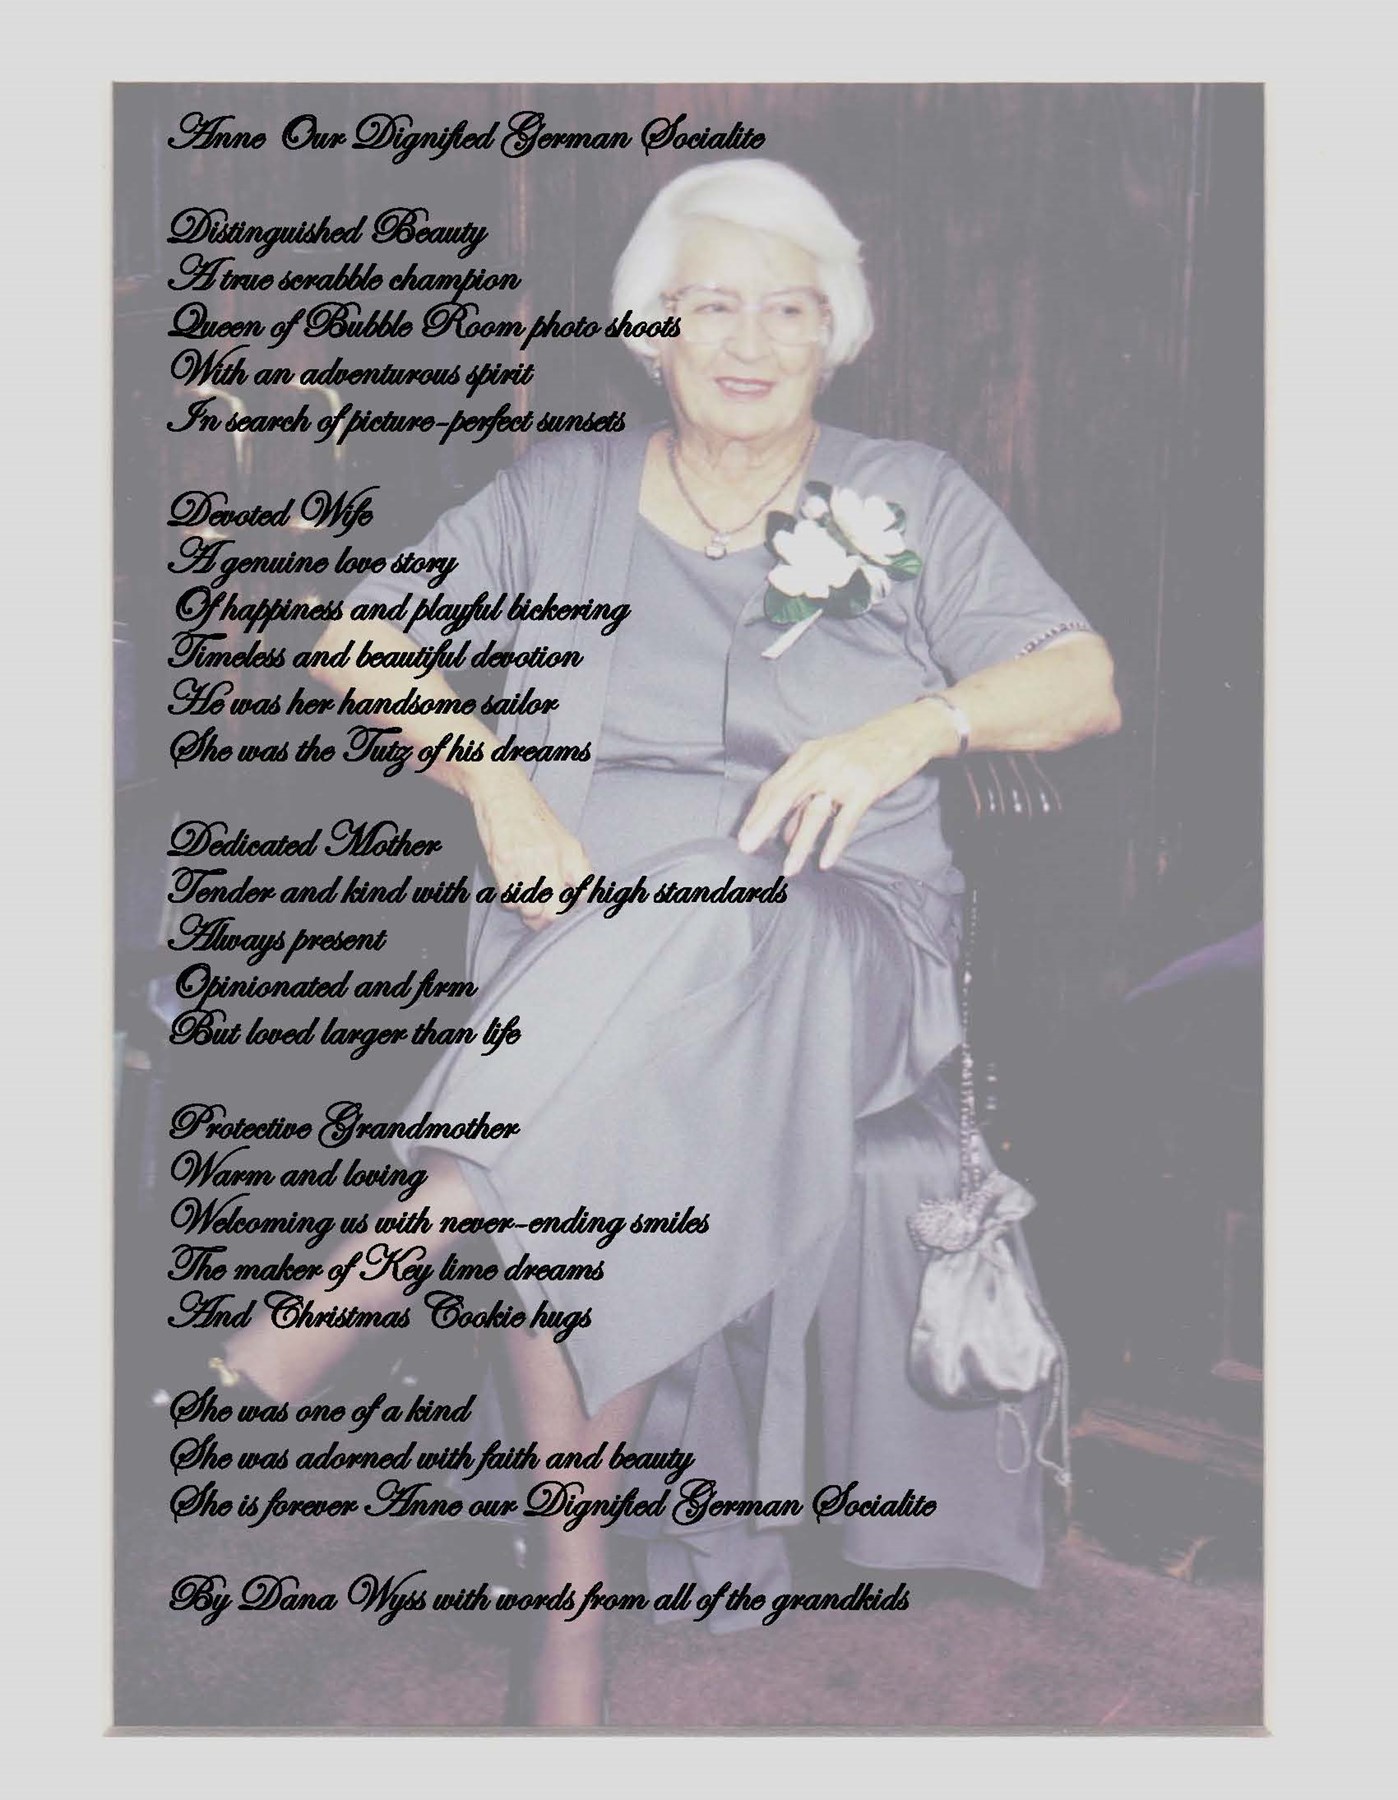 Anne Our Dignified German Socialite
Distinguished Beauty
A true scrabble champion
Queen of Bubble Room photo shoots
With an adventurous spirit
In search of picture-perfect sunsets
Devoted Wife
A genuine love story
Of happiness and playful bickering
Timeless and beautiful devotion
He was her handsome sailor
She was the Tutz of his dreams
Dedicated Mother
Tender and kind with a side of high standards
Always present
Opinionated and firm
But loved larger than life
Protective Grandmother
Warm and loving
Welcoming us with never-ending smiles
The maker of Key lime dreams
And Christmas Cookie hugs
She was one of a kind
She was adorned with faith and beauty
She is forever Anne our Dignified German Socialite
By Dana Wyss with words from all of the grandkids